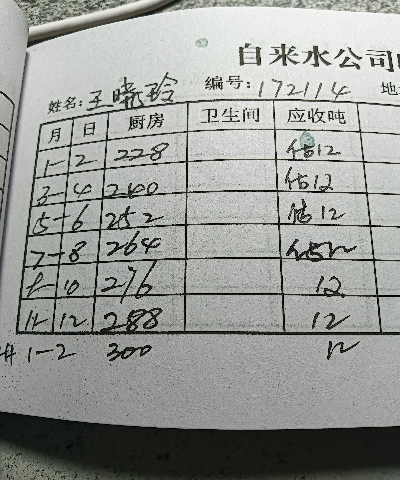 自来水公司
姓名:王晓玲 编号:172114 地
月 日 厨房 卫生间 应收吨
1-2 228 估12
3-4 240 估12
5-6 252 估12
7-8 264 估12
9-10 276 12
11-12 288 12
1-2 300 12